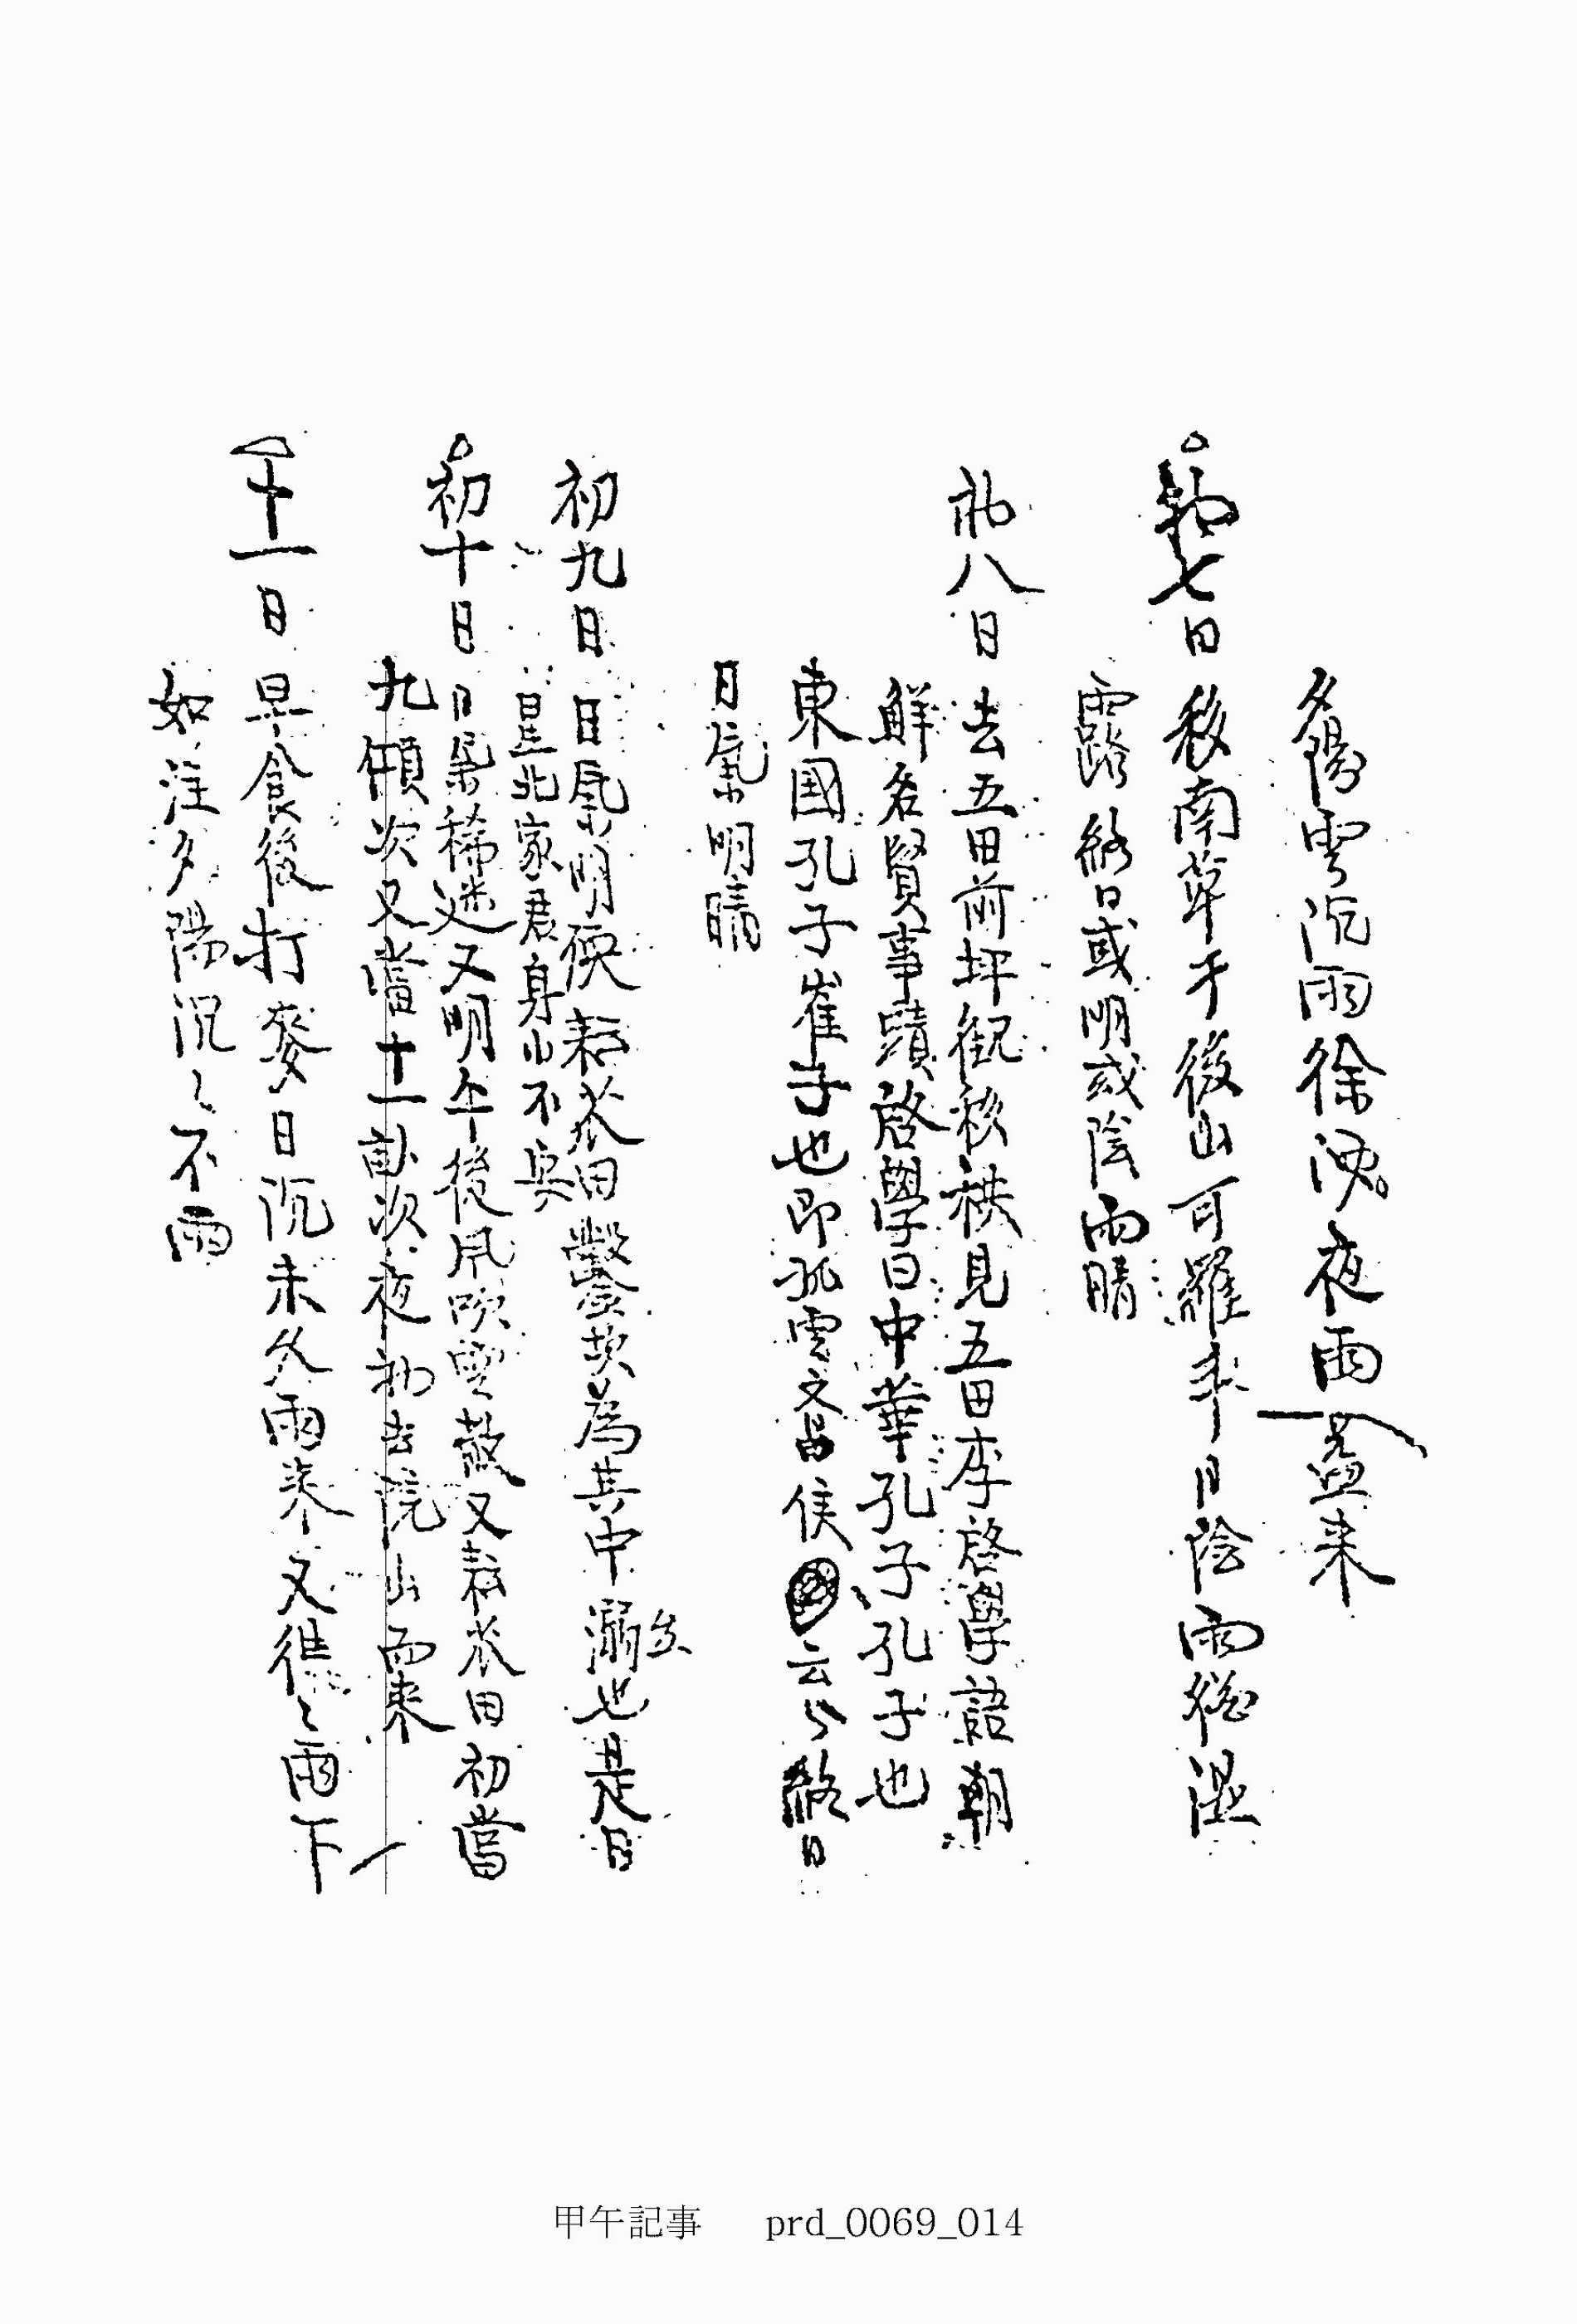 夕陽雲沉雨徐洩夜雨盖来
初七日 移南草于後山可羅平日陰雨㣲湿
露終日或明或陰雨晴
初八日 去五田前坪観移秧見五田李啓學語朝
鮮名賢事蹟啓學曰中華孔子孔子也
東國孔子崔子也即孤雲文昌侯云々終日
日氣明晴
初九日 日氣明 耘衣田鑿 為其中溺出也是日
是北家君身 不
初十日 日氣稀迷又明午後風吹雲散又耘衣田初當
九傾次又當十一畝次夜初去院山而来
十一日 早食後打麥日沉未久雨来又徃〻雨下
如注夕陽沉〻不雨
甲午記事 prd_0069_014